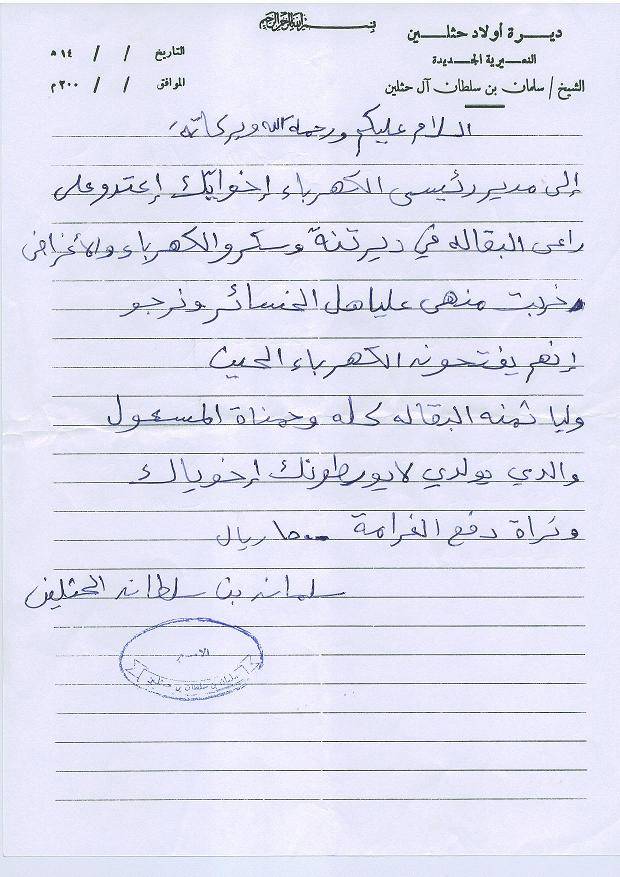 بسم الله الرحمن الرحيم
ديرة أولاد حثلين
النعيرية الجديدة
الشيخ / سلمان بن سلطان آل حثلين
التاريخ / / ١٤هـ
الموافق / / ٢٠٠م
السلام عليكم ورحمة الله وبركاته
إلى مدير رئيسى الكهرباء إخوانك إعتدو على
راعى البقاله في ديرتنة وسكرو الكهرباء والأغراض
خربت منهى علياهل الخسائر ونرجو
إنهم يفتحونه الكهرباء الحين
وليا ثمنه البقاله كله وحمناة المسعول
والدي يولدي لا يورطونك إخوياك
وتراة دفع الغرامة ١٥٠٠ ريال
سلمان بن سلطان الحثلين
الاسم
سلمان بن سلطان بن حثلين